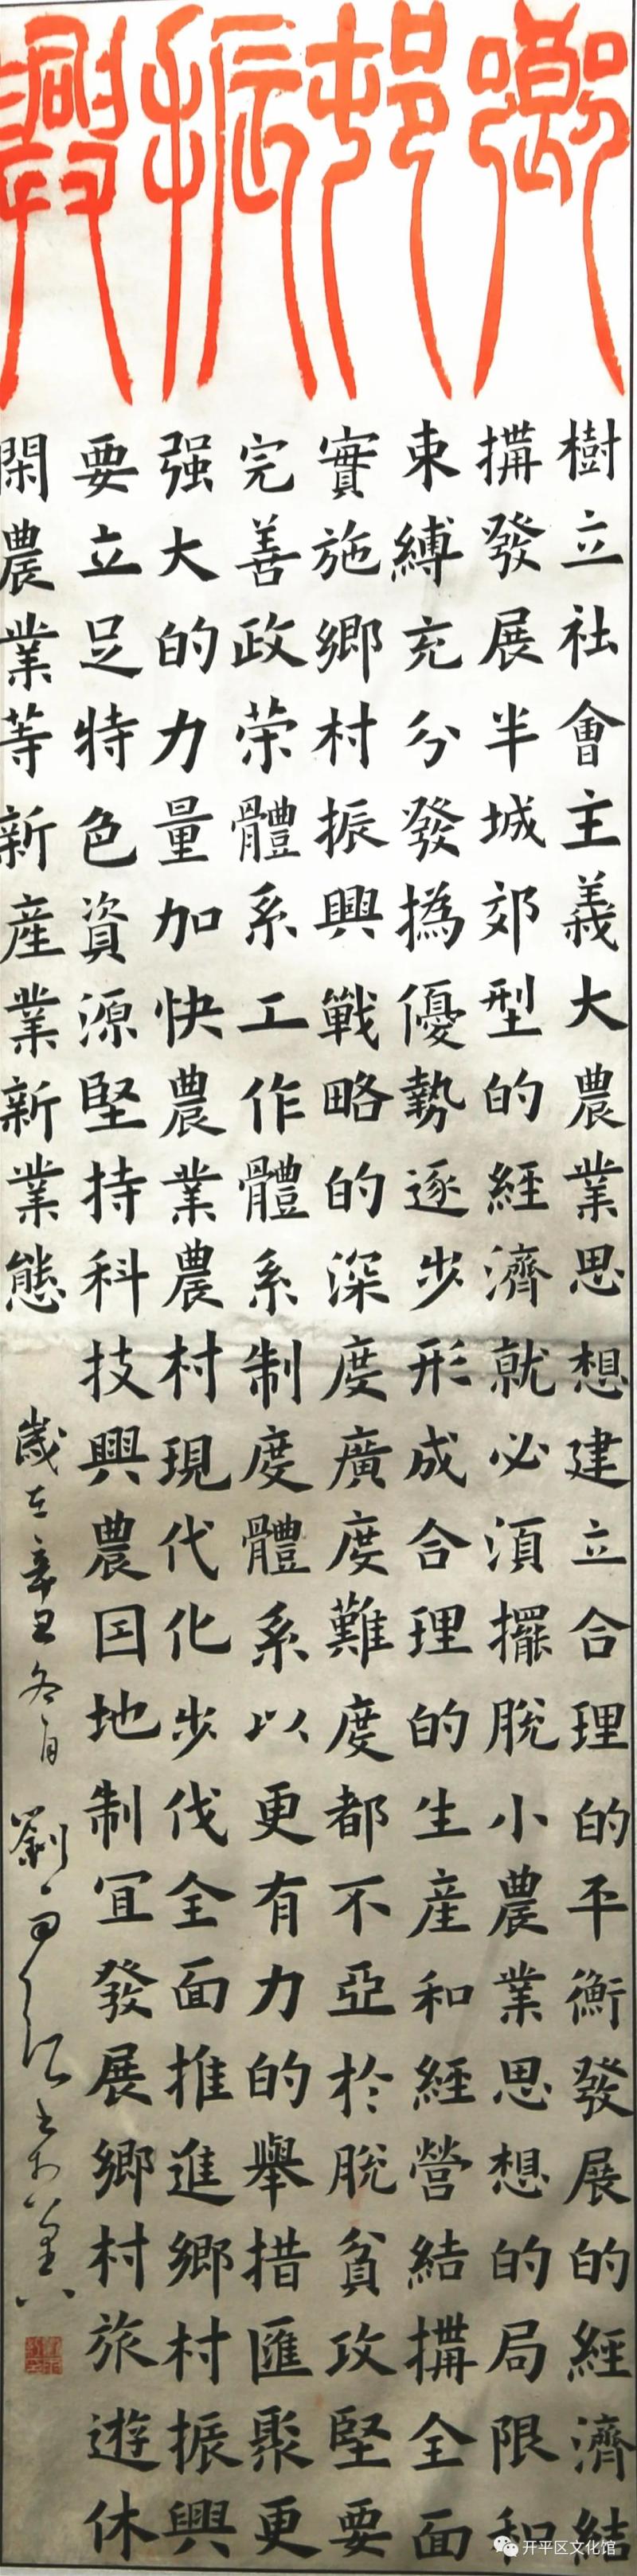 鄉邨振興
樹立社會主義大農業思想建立合理的平衡發展的經濟結
搆發展半城郊型的經濟就必湏擺脫小農業思想的局限和
束縛充分發撝優勢逐步形成合理的生産和經營結搆全面
實施鄉村振興戰略的深度廣度難度都不亞於脫貧攻堅要
完善政荣體系工作體系制度體系以更有力的舉措匯聚更
强大的力量加快農業農村現代化步伐全面推進鄉村振興
要立足特色資源堅持科技興農因地制宜發展鄉村旅遊休
閑農業等新産業新業態
歲在辛丑冬月
劉
开平区文化馆